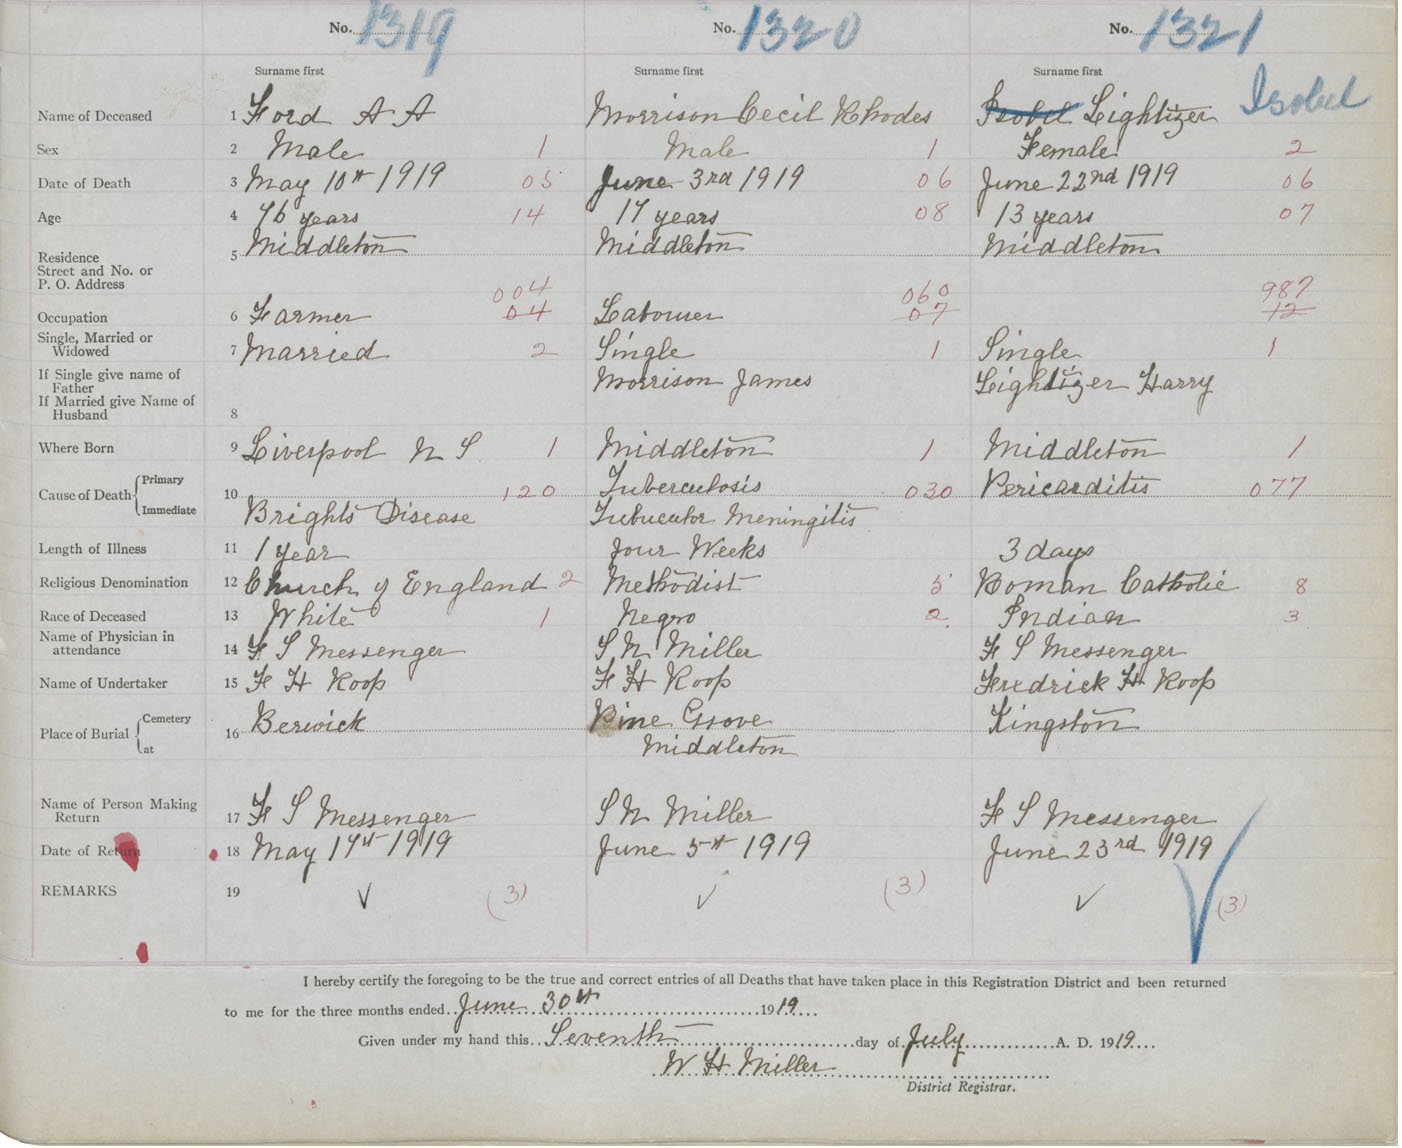 No. 1319 No. 1320 No. 1321
Surname first Surname first Surname first
Name of Deceased 1 Ford A A Morrison Cecil Rhodes Isobel Lightizer Isobel
Sex 2 Male 1 Male 1 Female 2
Date of Death 3 May 10th 1919 05 June 3rd 1919 06 June 22nd 1919 06
Age 4 76 years 14 17 years 08 13 years 07
5 Middleton Middleton Middleton
Residence
Street and No. or
P. O. Address
004 060 987
Occupation 6 Farmer 04 Labourer 07 12
Single, Married or
Widowed 7 Married 2 Single 1 Single 1
If Single give name of
Father Morrison James Lightizer Harry
If Married give Name of
Husband 8
Where Born 9 Liverpool N S 1 Middleton 1 Middleton 1
Cause of Death Primary 10 120 Tuberculosis 030 Pericarditis 077
Immediate Brights Disease Tubucular Meningitis
Length of Illness 11 1 year four Weeks 3 days
Religious Denomination 12 Church of England 2 Methodist 5 Roman Catholic 8
Race of Deceased 13 White 1 Negro 2 Indian 3
Name of Physician in
attendance 14 F S Messenger S N Miller F S Messenger
Name of Undertaker 15 F H Roop F H Roop Fredrick H Roop
Place of Burial Cemetery 16 Berwick Pine Grove Kingston
at Middleton
Name of Person Making
Return 17 F S Messenger S N Miller F S Messenger
Date of Return 18 May 17th 1919 June 5th 1919 June 23rd 1919
REMARKS 19 ✓ (3) ✓ (3) ✓ (3)
I hereby certify the foregoing to be the true and correct entries of all Deaths that have taken place in this Registration District and been returned
to me for the three months ended June 30th 1919
Given under my hand this Seventh day of July A. D. 1919
W H Miller
District Registrar.